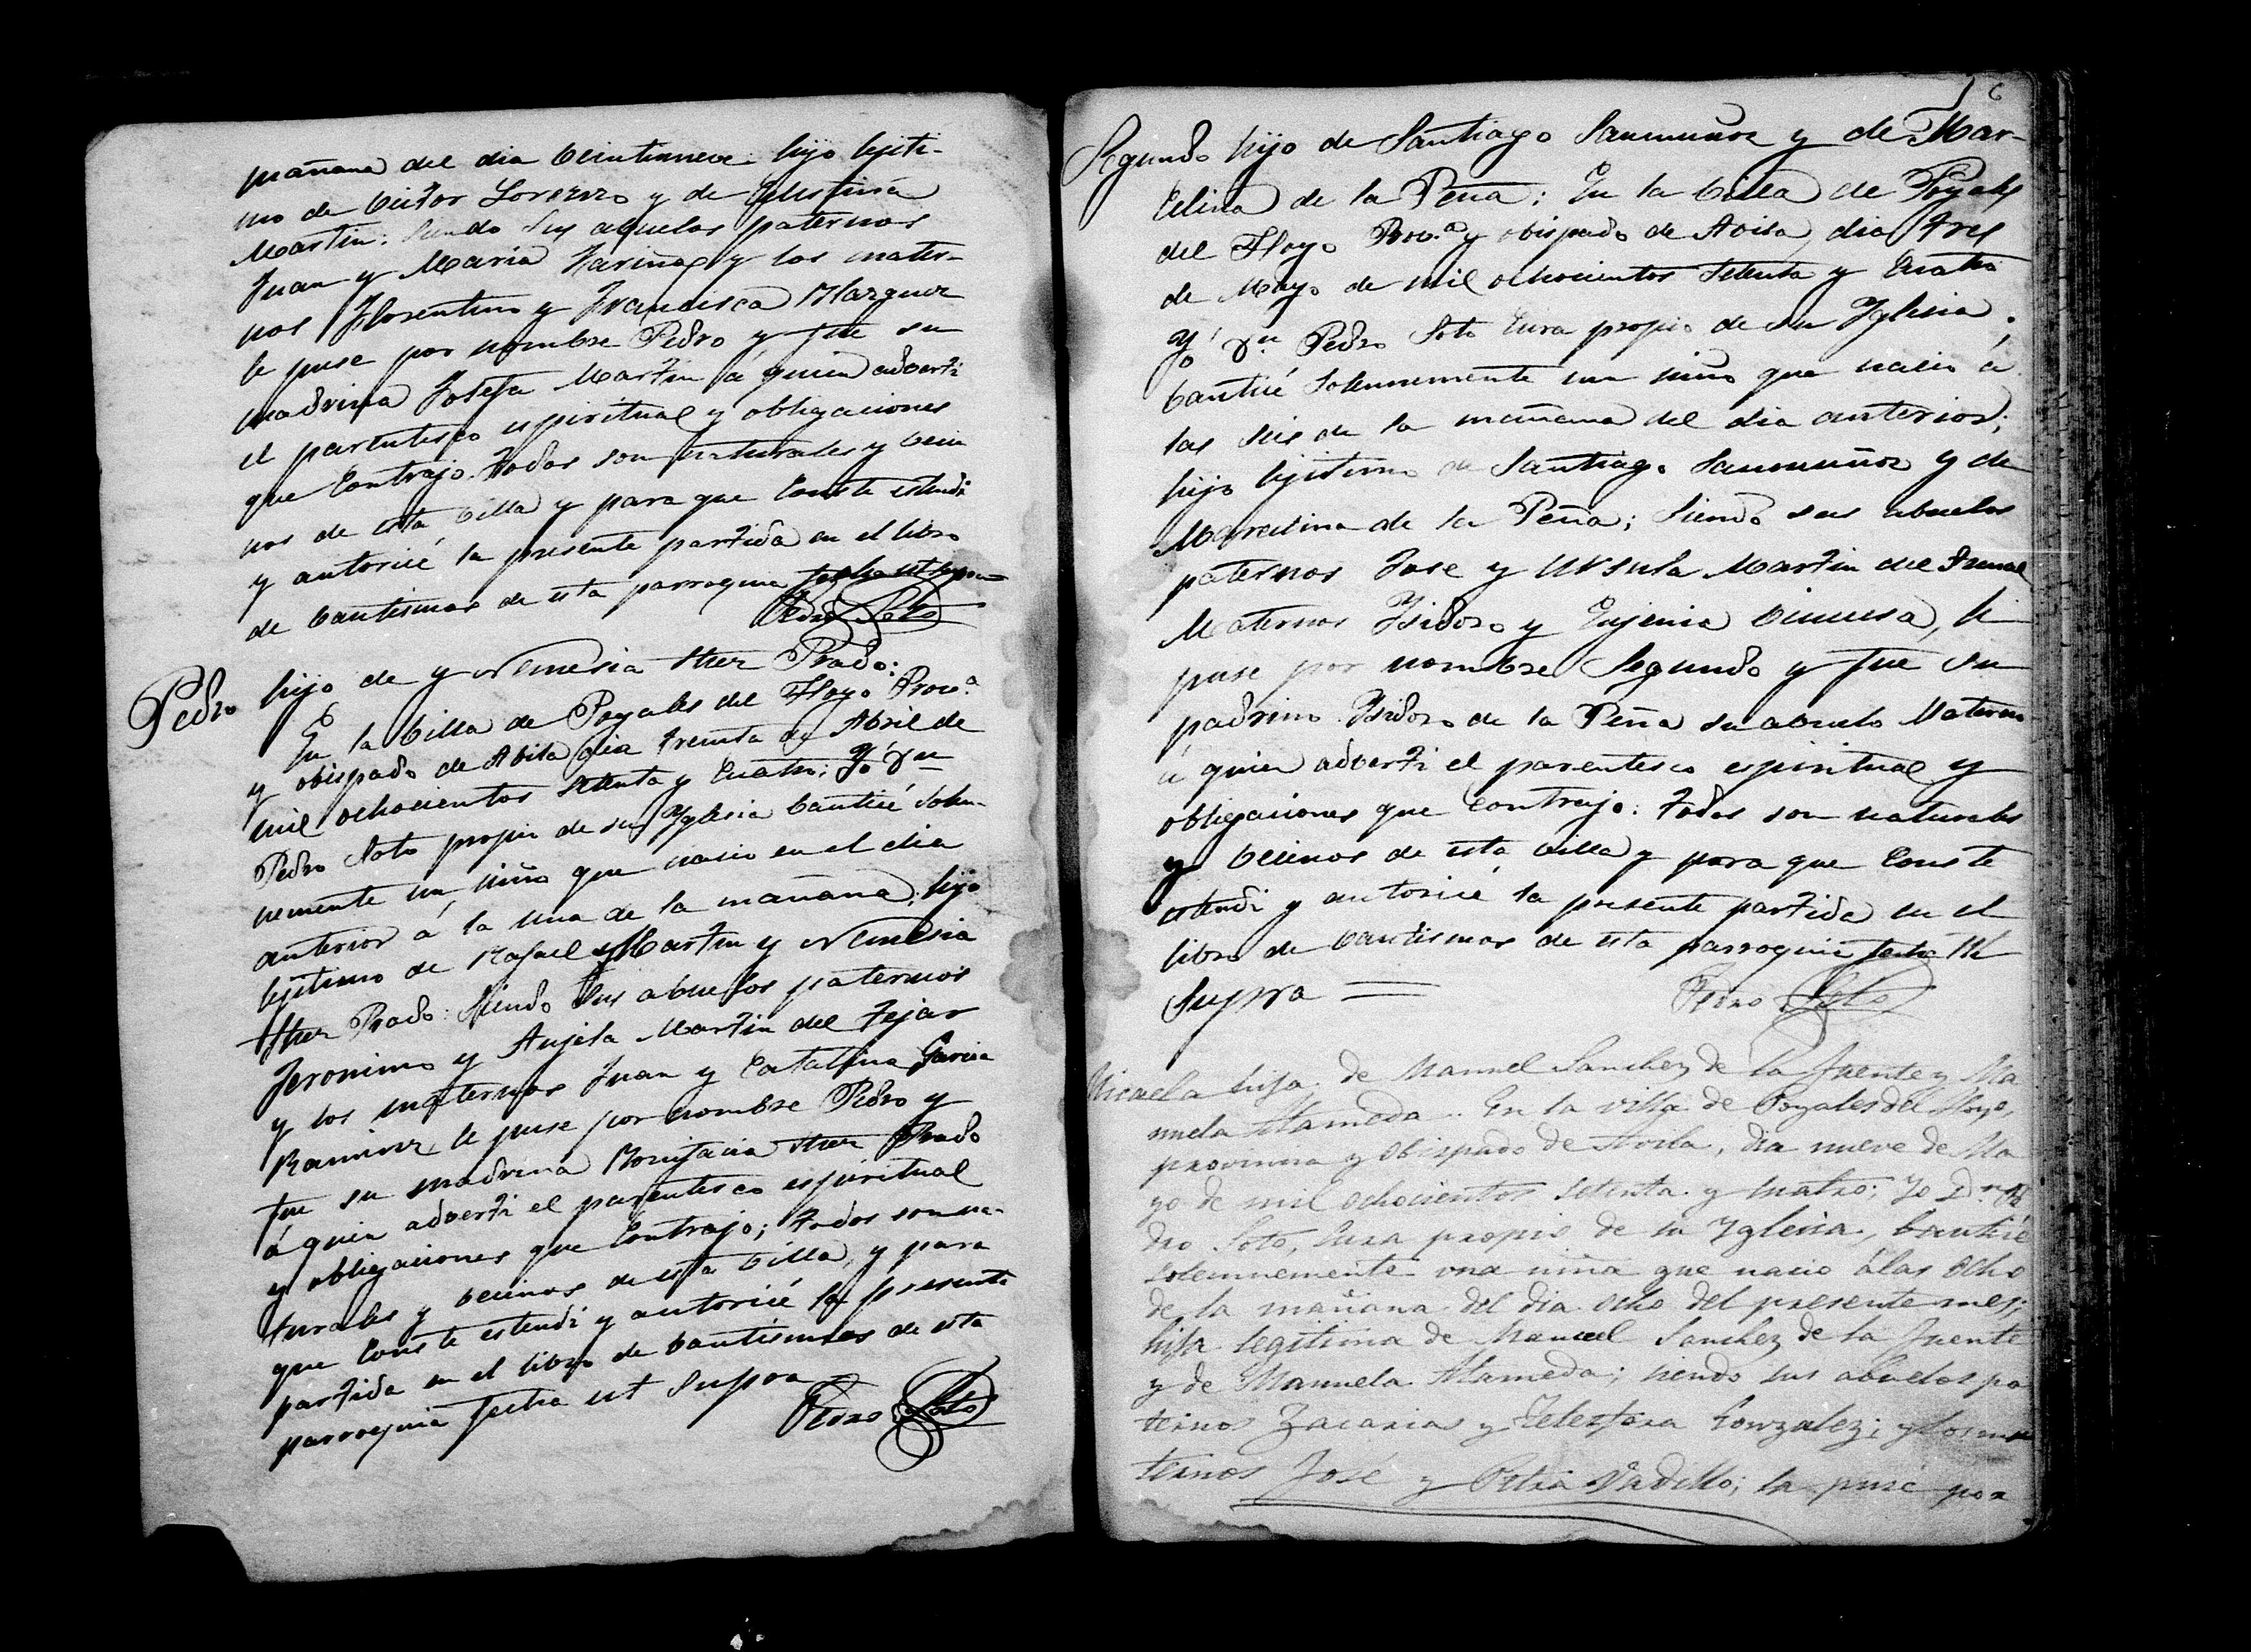 mañana del dia veintinueve: hijo lejiti-
mo de Victor Lorenzo y de Celestina
Martin: siendo sus abuelos paternos
Juan y Maria Fariñas y los mater-
nos Florentino y Francisca Blazquez
le puse por nombre Pedro y fue su
madrina Josefa Martin á quien adverti
el parentesco espiritual y obligaciones
que contrajo. Todos son naturales y veci
nos de esta villa y para que conste estendi
y autoricé la presente partida en el libro
de bautismos de esta parroquia fecha ut supra=
Pedro Soto
Pedro hijo de y Nemesia Sthez Prado:
En la villa de Poyales del Hoyo Prov.ª
y obispado de Avila dia treinta de Abril de
mil ochocientos setenta y cuatro; Yó Dn
Pedro Soto propio de su Yglesia bauticé solem-
nemente un niño que nacio en el dia
anterior á la una de la mañana, hijo
lejitimo de Rafael Martin y Nemesia
Sthez Prado: siendo sus abuelos paternos
Jeronimo y Anjela Martin del Tejar
y los maternos Juan y Catalina Garcia
Ramirez le puse por nombre Pedro y
fue su madrina Bonifacia Sthez Prado
á quien adverti el parentesco espiritual
y obligaciones que contrajo; todos son na-
turales y vecinos de esta villa, y para
que conste estendi y autoricé la presente
partida en el libro de bautismos de esta
parroquia fecha ut supra
Pedro Soto
6
Segundo hijo de Santiago Sanmuñoz y de Mar-
celina de la Peña; En la villa de Poyales
del Hoyo Prov.ª y obispado de Avila, dia tres
de Mayo de mil ochocientos setenta y cuatro
Yó Dn Pedro Soto cura propio de su Yglesia.
bauticé solemnemente un niño que nació á
las seis de la mañana del dia anterior;
hijo lejitimo de Santiago Sanmuñoz y de
Marcelina de la Peña; siendo sus abuelos
paternos Jose y Ursula Martin del
Maternos Ysidoro y Eujenia, le
puse por nombre Segundo y fue su
padrino Ysidoro de la Peña su abuelo Materno
á quien adverti el parentesco espiritual y
obligaciones que contrajo: todos son naturales
y vecinos de esta villa y para que conste
estendi y autoricé la presente partida en el
libro de bautismos de esta parroquia fecha ut
supra =
Pedro Soto
Micaela hija de Manuel Sanchez de la Fuente y Ma
nuela Alameda.. En la villa de Poyales del Hoyo,
provincia y Obispado de Avila, dia nueve de Ma
yo de mil ochocientos setenta y cuatro; Yo Dn Pe
dro Soto, cura propio de su Yglesia, bauticé
solemnemente una niña que nacio á las ocho
de la mañana del dia ocho del presente mes;
hija legitima de Manuel Sanchez de la Fuente
y de Manuela Alameda; siendo sus abuelos pa
ternos Zacarias y Telesfora Gonzalez; y los ma
ternos José y Petra Vadillo; la puse por